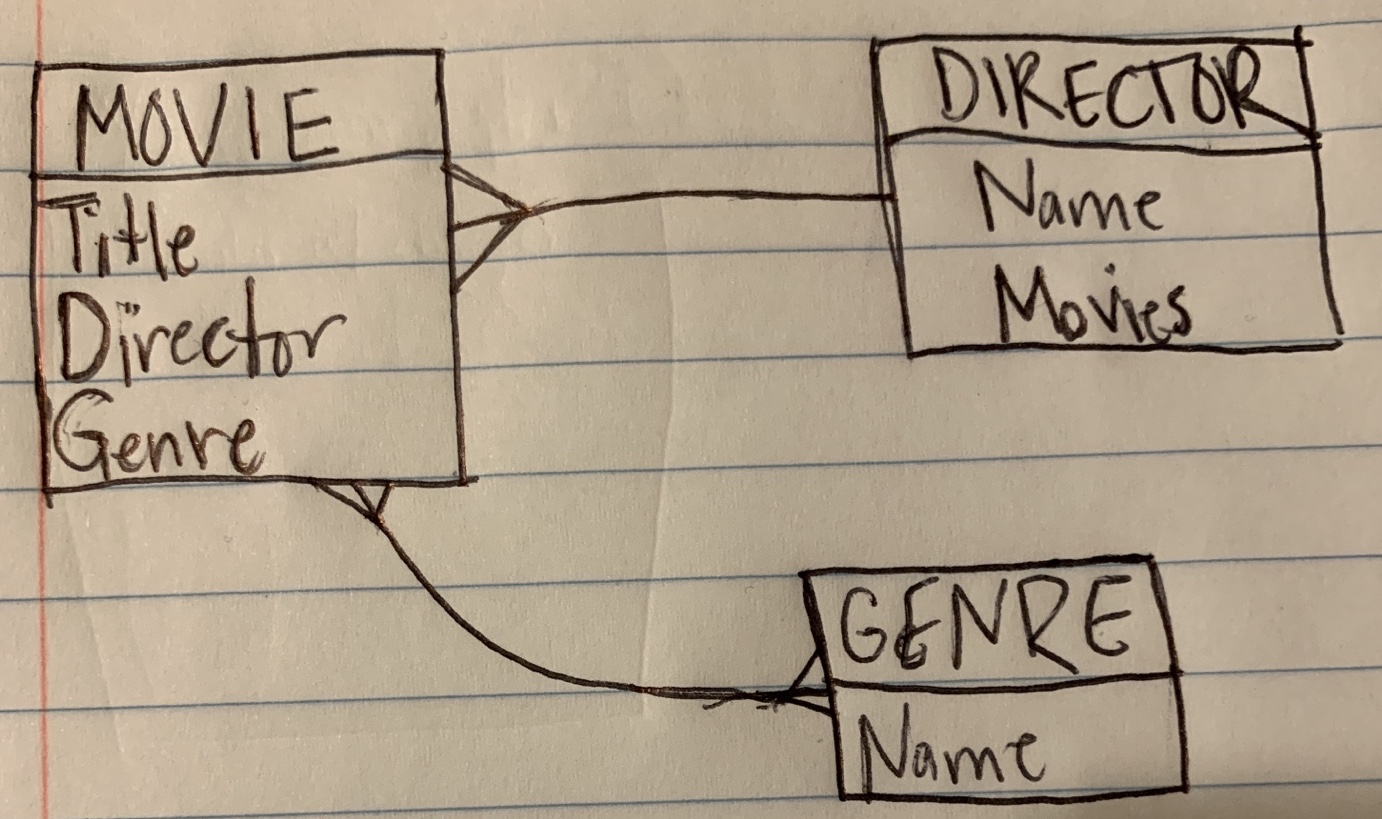 MOVIE
Title
Director
Genre
DIRECTOR
Name
Movies
GENRE
Name